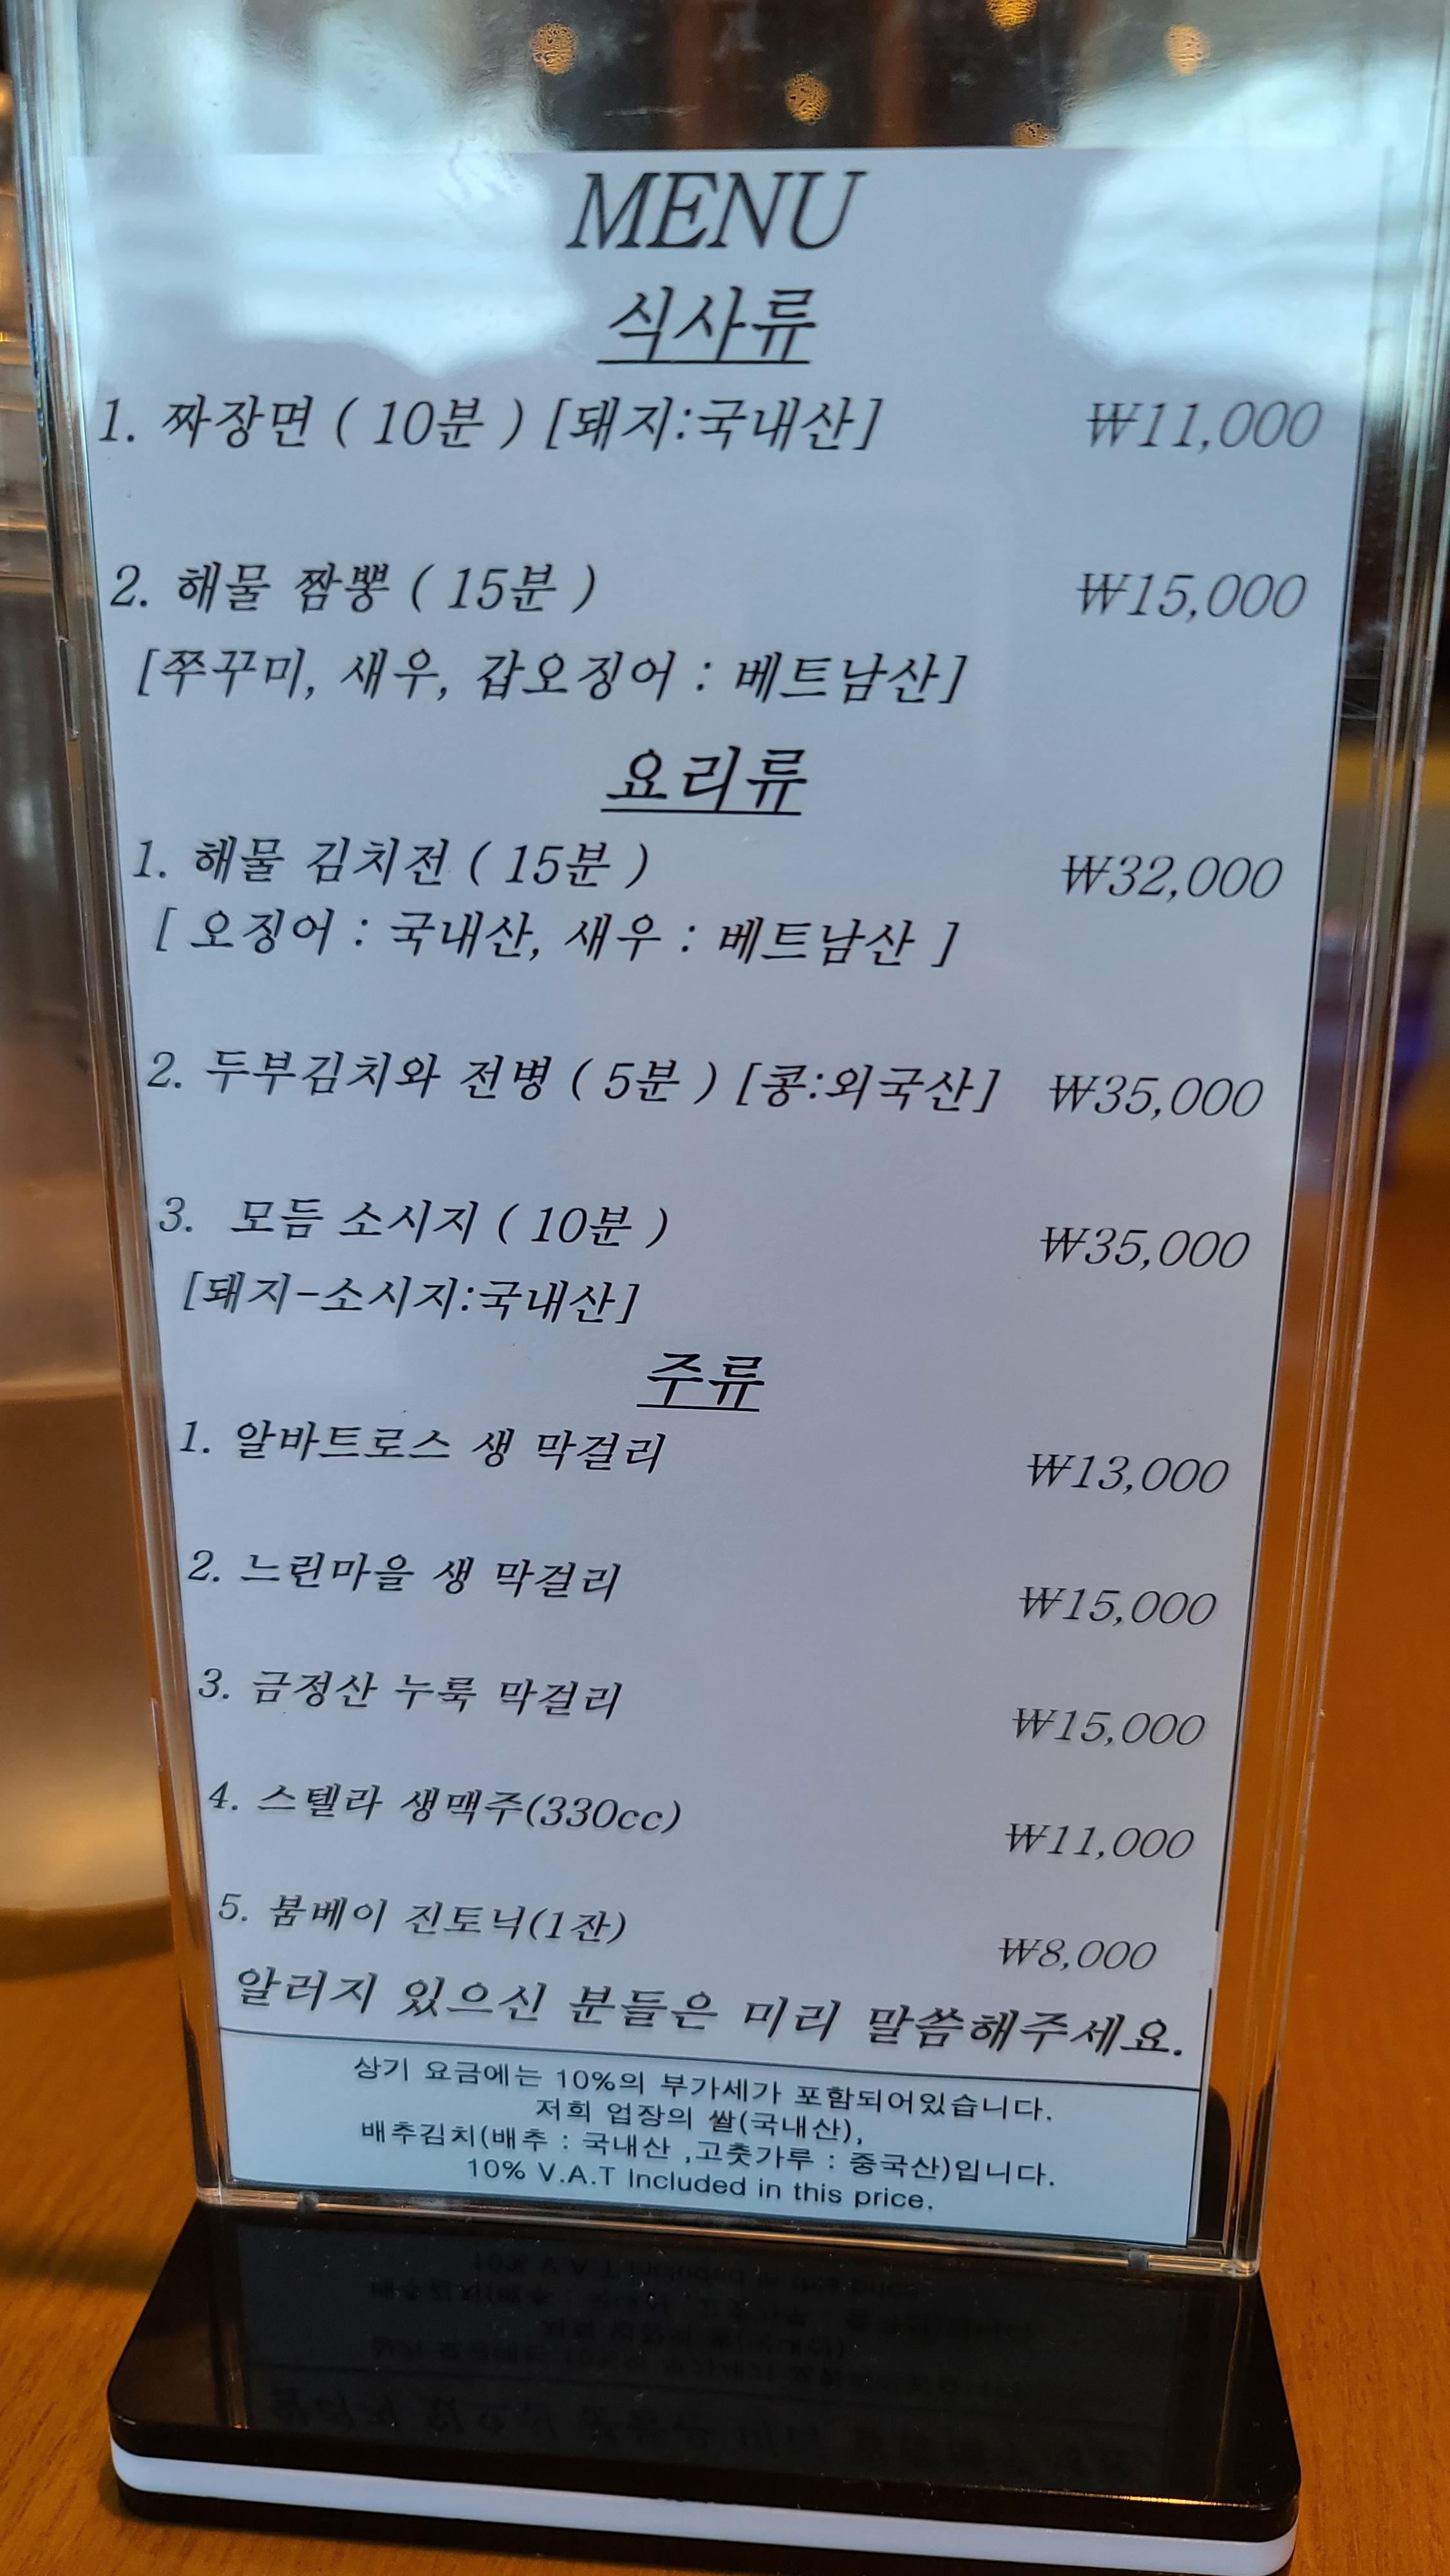 MENU
식사류
1. 짜장면 ( 10분 ) [돼지:국내산] ₩11,000
2. 해물 짬뽕 ( 15분 ) ₩15,000
[쭈꾸미, 새우, 갑오징어 : 베트남산]
요리류
1. 해물 김치전 ( 15분 ) ₩32,000
[ 오징어 : 국내산, 새우 : 베트남산 ]
2. 두부김치와 전병 ( 5분 ) [콩:외국산] ₩35,000
3. 모듬 소시지 ( 10분 ) ₩35,000
[돼지-소시지:국내산]
주류
1. 알바트로스 생 막걸리 ₩13,000
2. 느린마을 생 막걸리 ₩15,000
3. 금정산 누룩 막걸리 ₩15,000
4. 스텔라 생맥주(330cc) ₩11,000
5. 봄베이 진토닉(1잔) ₩8,000
알러지 있으신 분들은 미리 말씀해주세요.
상기 요금에는 10%의 부가세가 포함되어있습니다.
저희 업장의 쌀(국내산),
배추김치(배추 : 국내산 ,고춧가루 : 중국산)입니다.
10% V.A.T Included in this price.